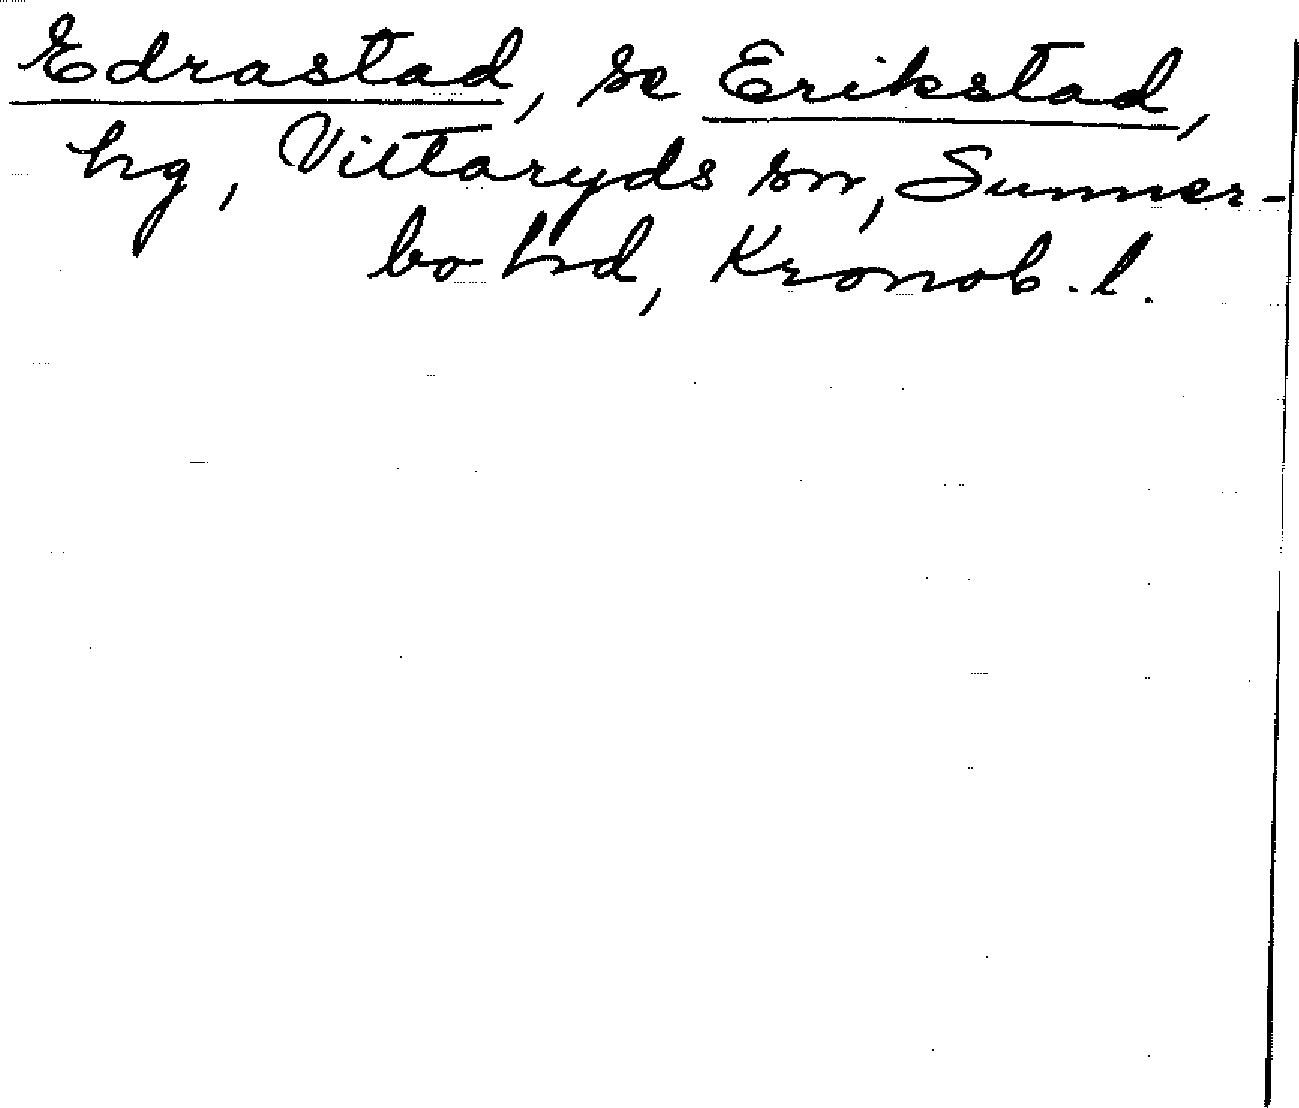 Edrastad, se Erikstad,
hg, Vittaryds sn, Sunner-
bo hd, Kronob. l.